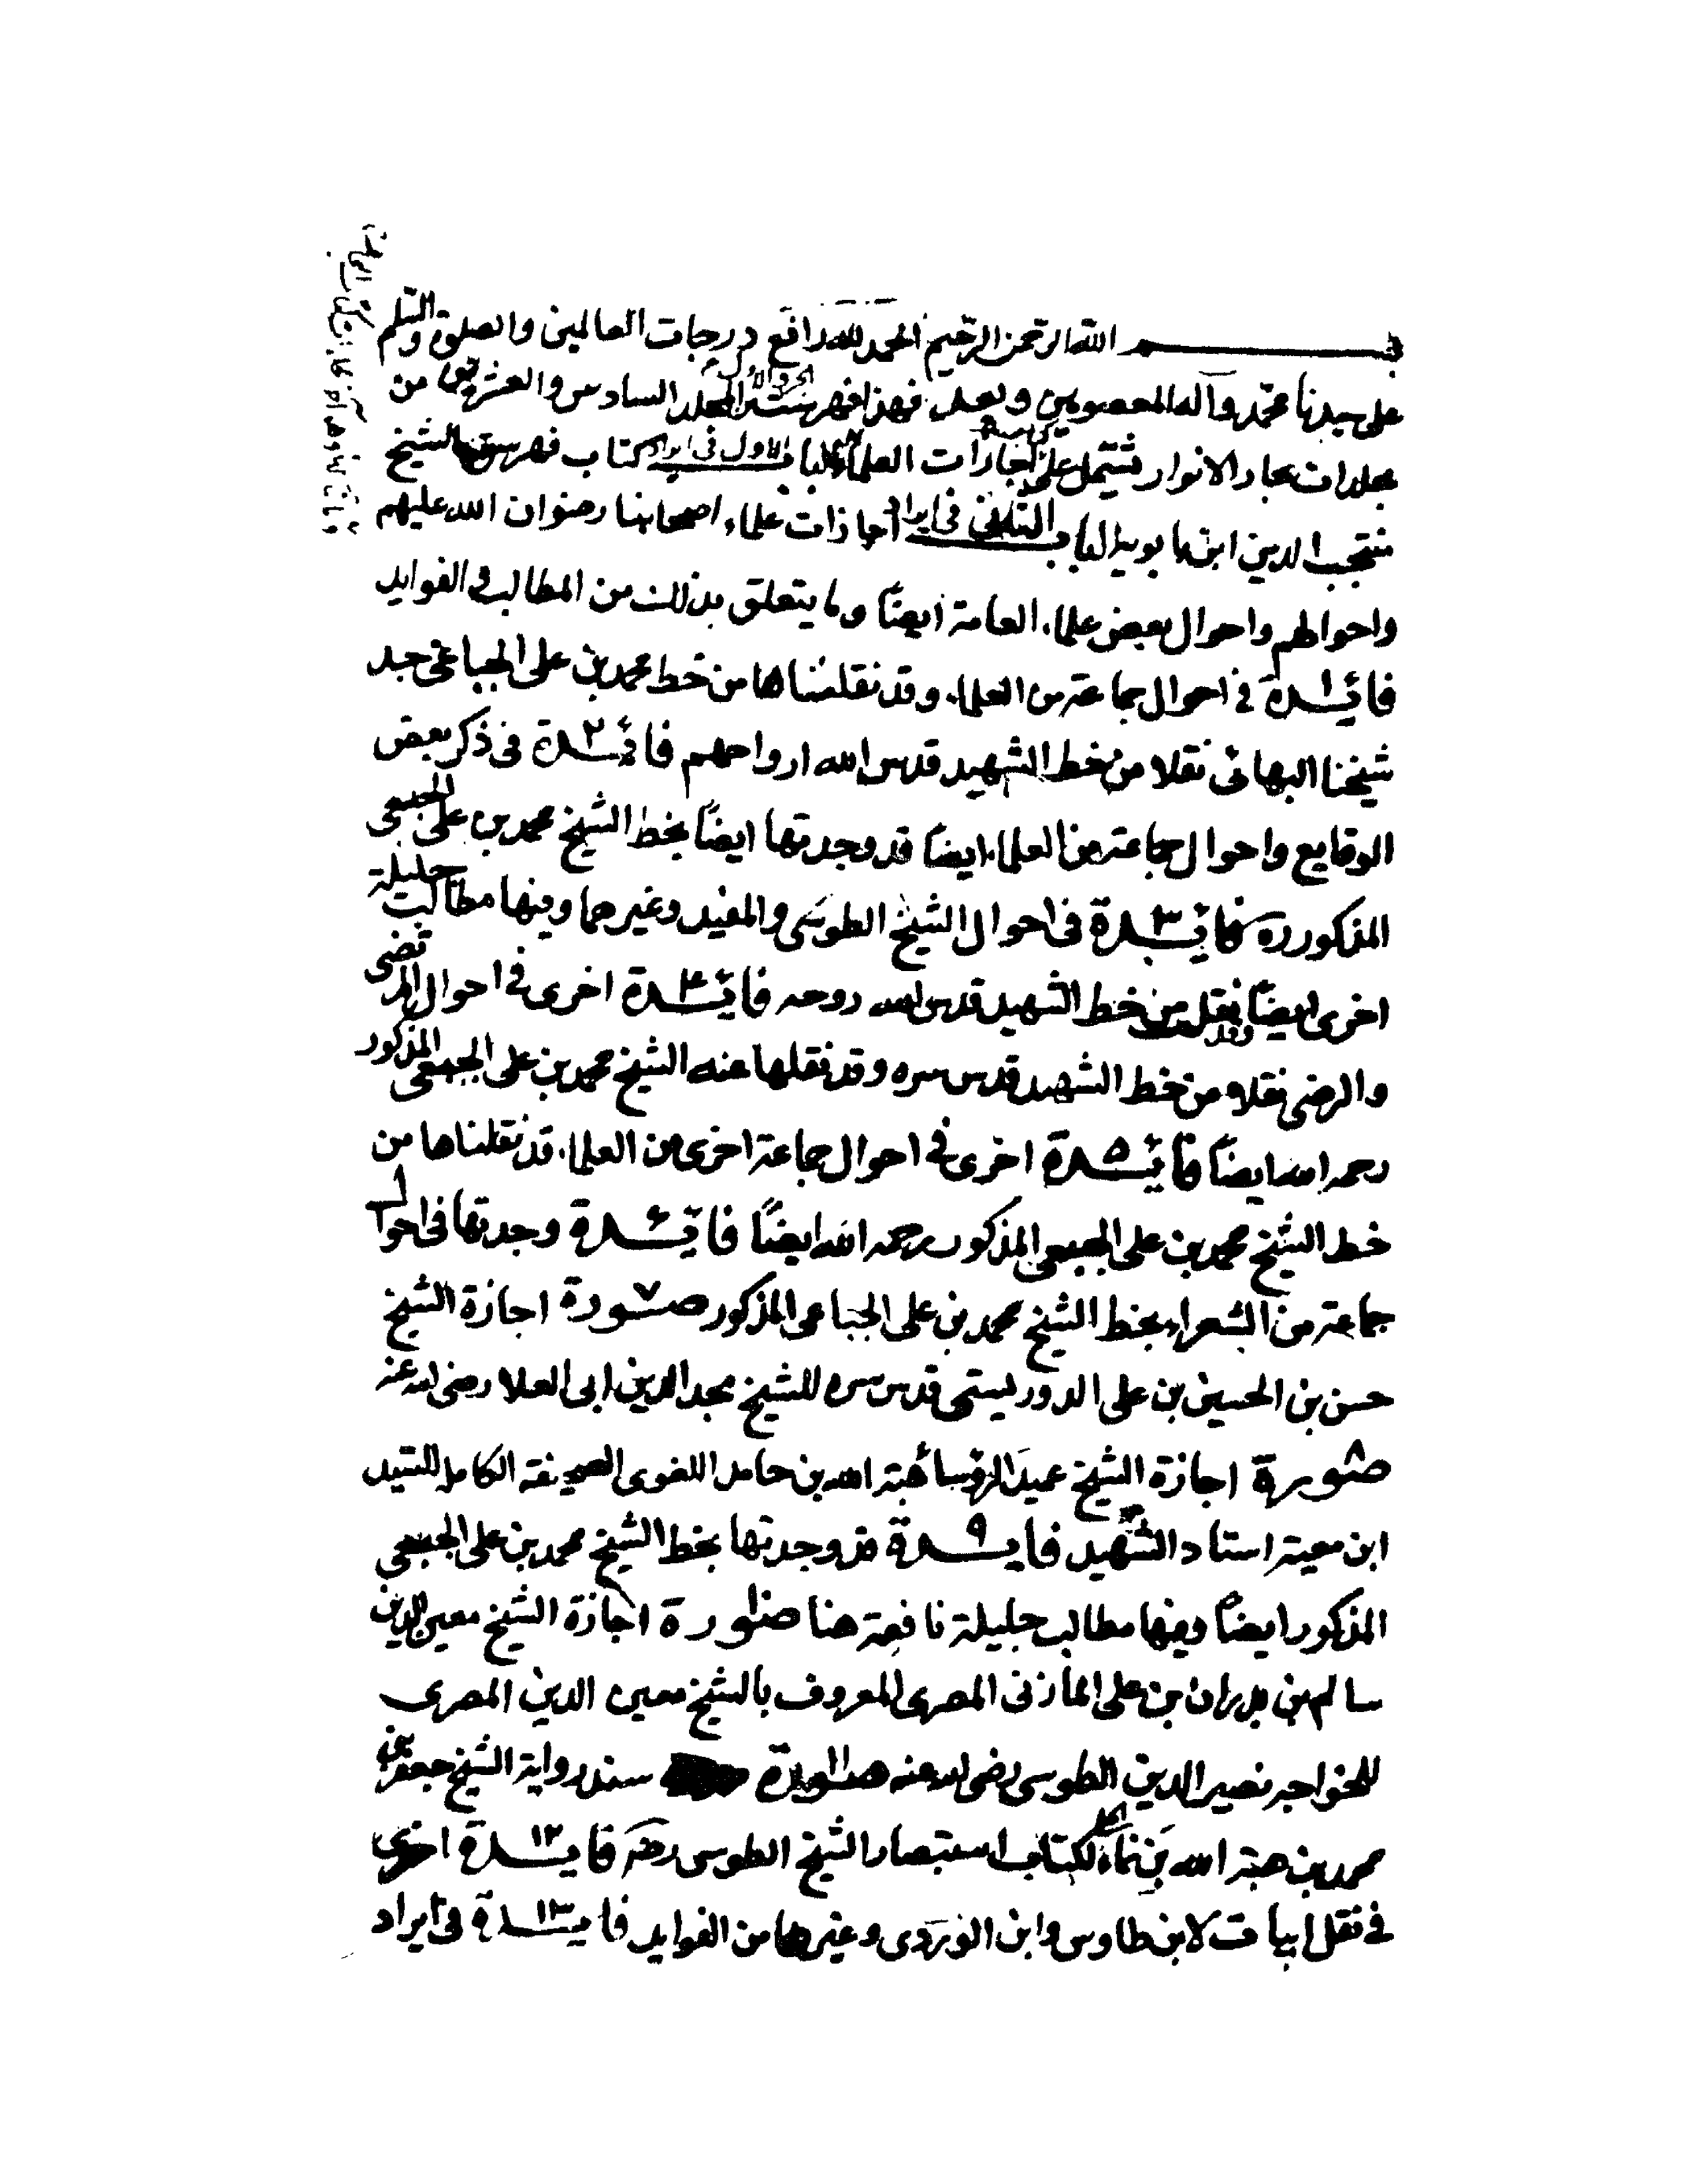 بسم الله الرحمن الرحيم الحمد لله رافع درجات العالمين والصلوة والسلم
على سيدنا محمد وآله المعصومين وبعد فهذا فهرست الجزو الاول المجلد السادس والعشرين من
مجلدات بحار الانوار يشتمل على اجازات العلماء الباب الاول فى ايراد كتاب فهرست الشيخ
منتجب الدين ابن بابويه الباب الثانى فى ايراد اجازات علماء اصحابنا رضوان الله عليهم
واحوالهم واحوال بعض علماء العامة ايضاً وما يتعلق بذلك من المطالب والفوايد
فائدة ١ فى احوال جماعة من العلماء وقد نقلناها من خط محمد بن على الجباعى جد
شيخنا البهائى نقلا من خط الشهيد قدس الله ارواحهم فائدة ٢ فى ذكر بعض
الوقايع واحوال جماعة من العلماء ايضاً قد وجدتها ايضاً بخط الشيخ محمد بن على الجبعى
المذكور ره فائدة ٣ فى احوال الشيخ الطوسى والمفيد وغيرهما وفيها مطالب جليلة
اخرى ايضاً نقل من خط الشهيد قدس الله روحه فائدة ٤ اخرى فى احوال المرتضى
والرضى نقلا من خط الشهيد قدس سره وقد نقلها عنه الشيخ محمد بن على الجبعى المذكور
رحمه الله ايضاً فائدة ٥ اخرى فى احوال جماعة اخرى من العلماء قد نقلناها من
خط الشيخ محمد بن على الجبعى المذكور رحمه الله ايضاً فائدة ۶ وجدتها فى احوال
جماعة من الشعراء بخط الشيخ محمد بن على الجباعى المذكور صورة ٧ اجازة الشيخ
حسن بن الحسين بن على الدوريستى قدس سره للشيخ مجد الدين ابى العلا رضى الله عنه
صورة ٨ اجازة الشيخ عميد الرؤسا هبة الله بن حامد اللغوى الصحيفة الكامله للسيد
ابن معية استاد الشهيد فايدة ٩ قد وجدتها بخط الشيخ محمد بن على الجبعى
المذكور ايضاً وفيها مطالب جليلة نافعة هنا صورة ١٠ اجازة الشيخ معين الدين
سالم بن بدران بن على المازنى المصرى المعروف بالشيخ معين الدين المصرى
للخواجه نصير الدين الطوسى رضى الله عنه صورة ١١ سند رواية الشيخ جعفر بن
محمد بن هبة الله بن نماء الحلى لكتاب استبصار الشيخ الطوسى رضه فايدة ١٢ اخرى
فى نقل ابيات لابن طاوس وابن الوردى وغيرهما من الفوايد فايدة ١٣ فى ايراد